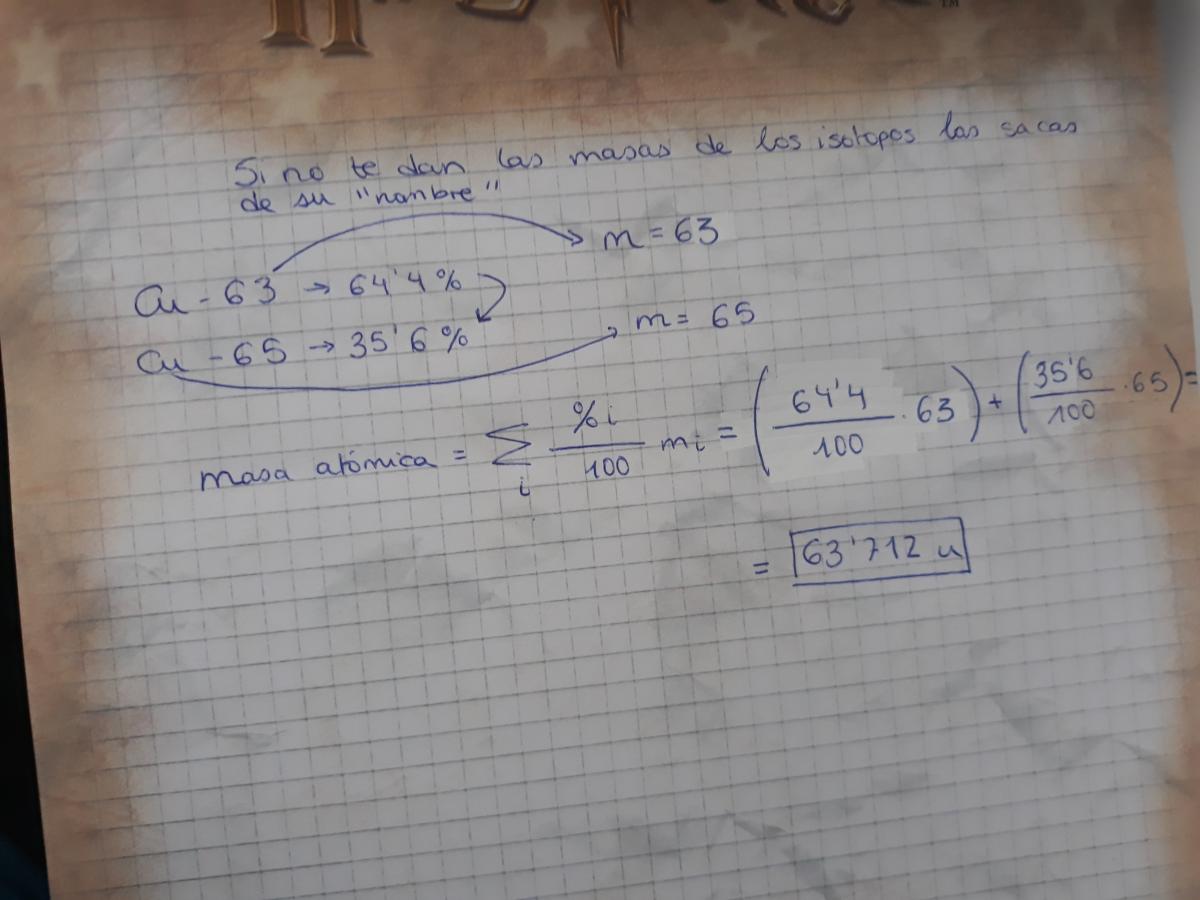 TM
Si no te dan las masas de los isotopos las sacas
de su "nombre"
m = 63
Cu - 63 → 64'4%
m = 65
Cu - 65 → 35'6%
masa atómica = Σ i %i/100 mi = (64'4/100 · 63) + (35'6/100 · 65) =
= 63'712 u